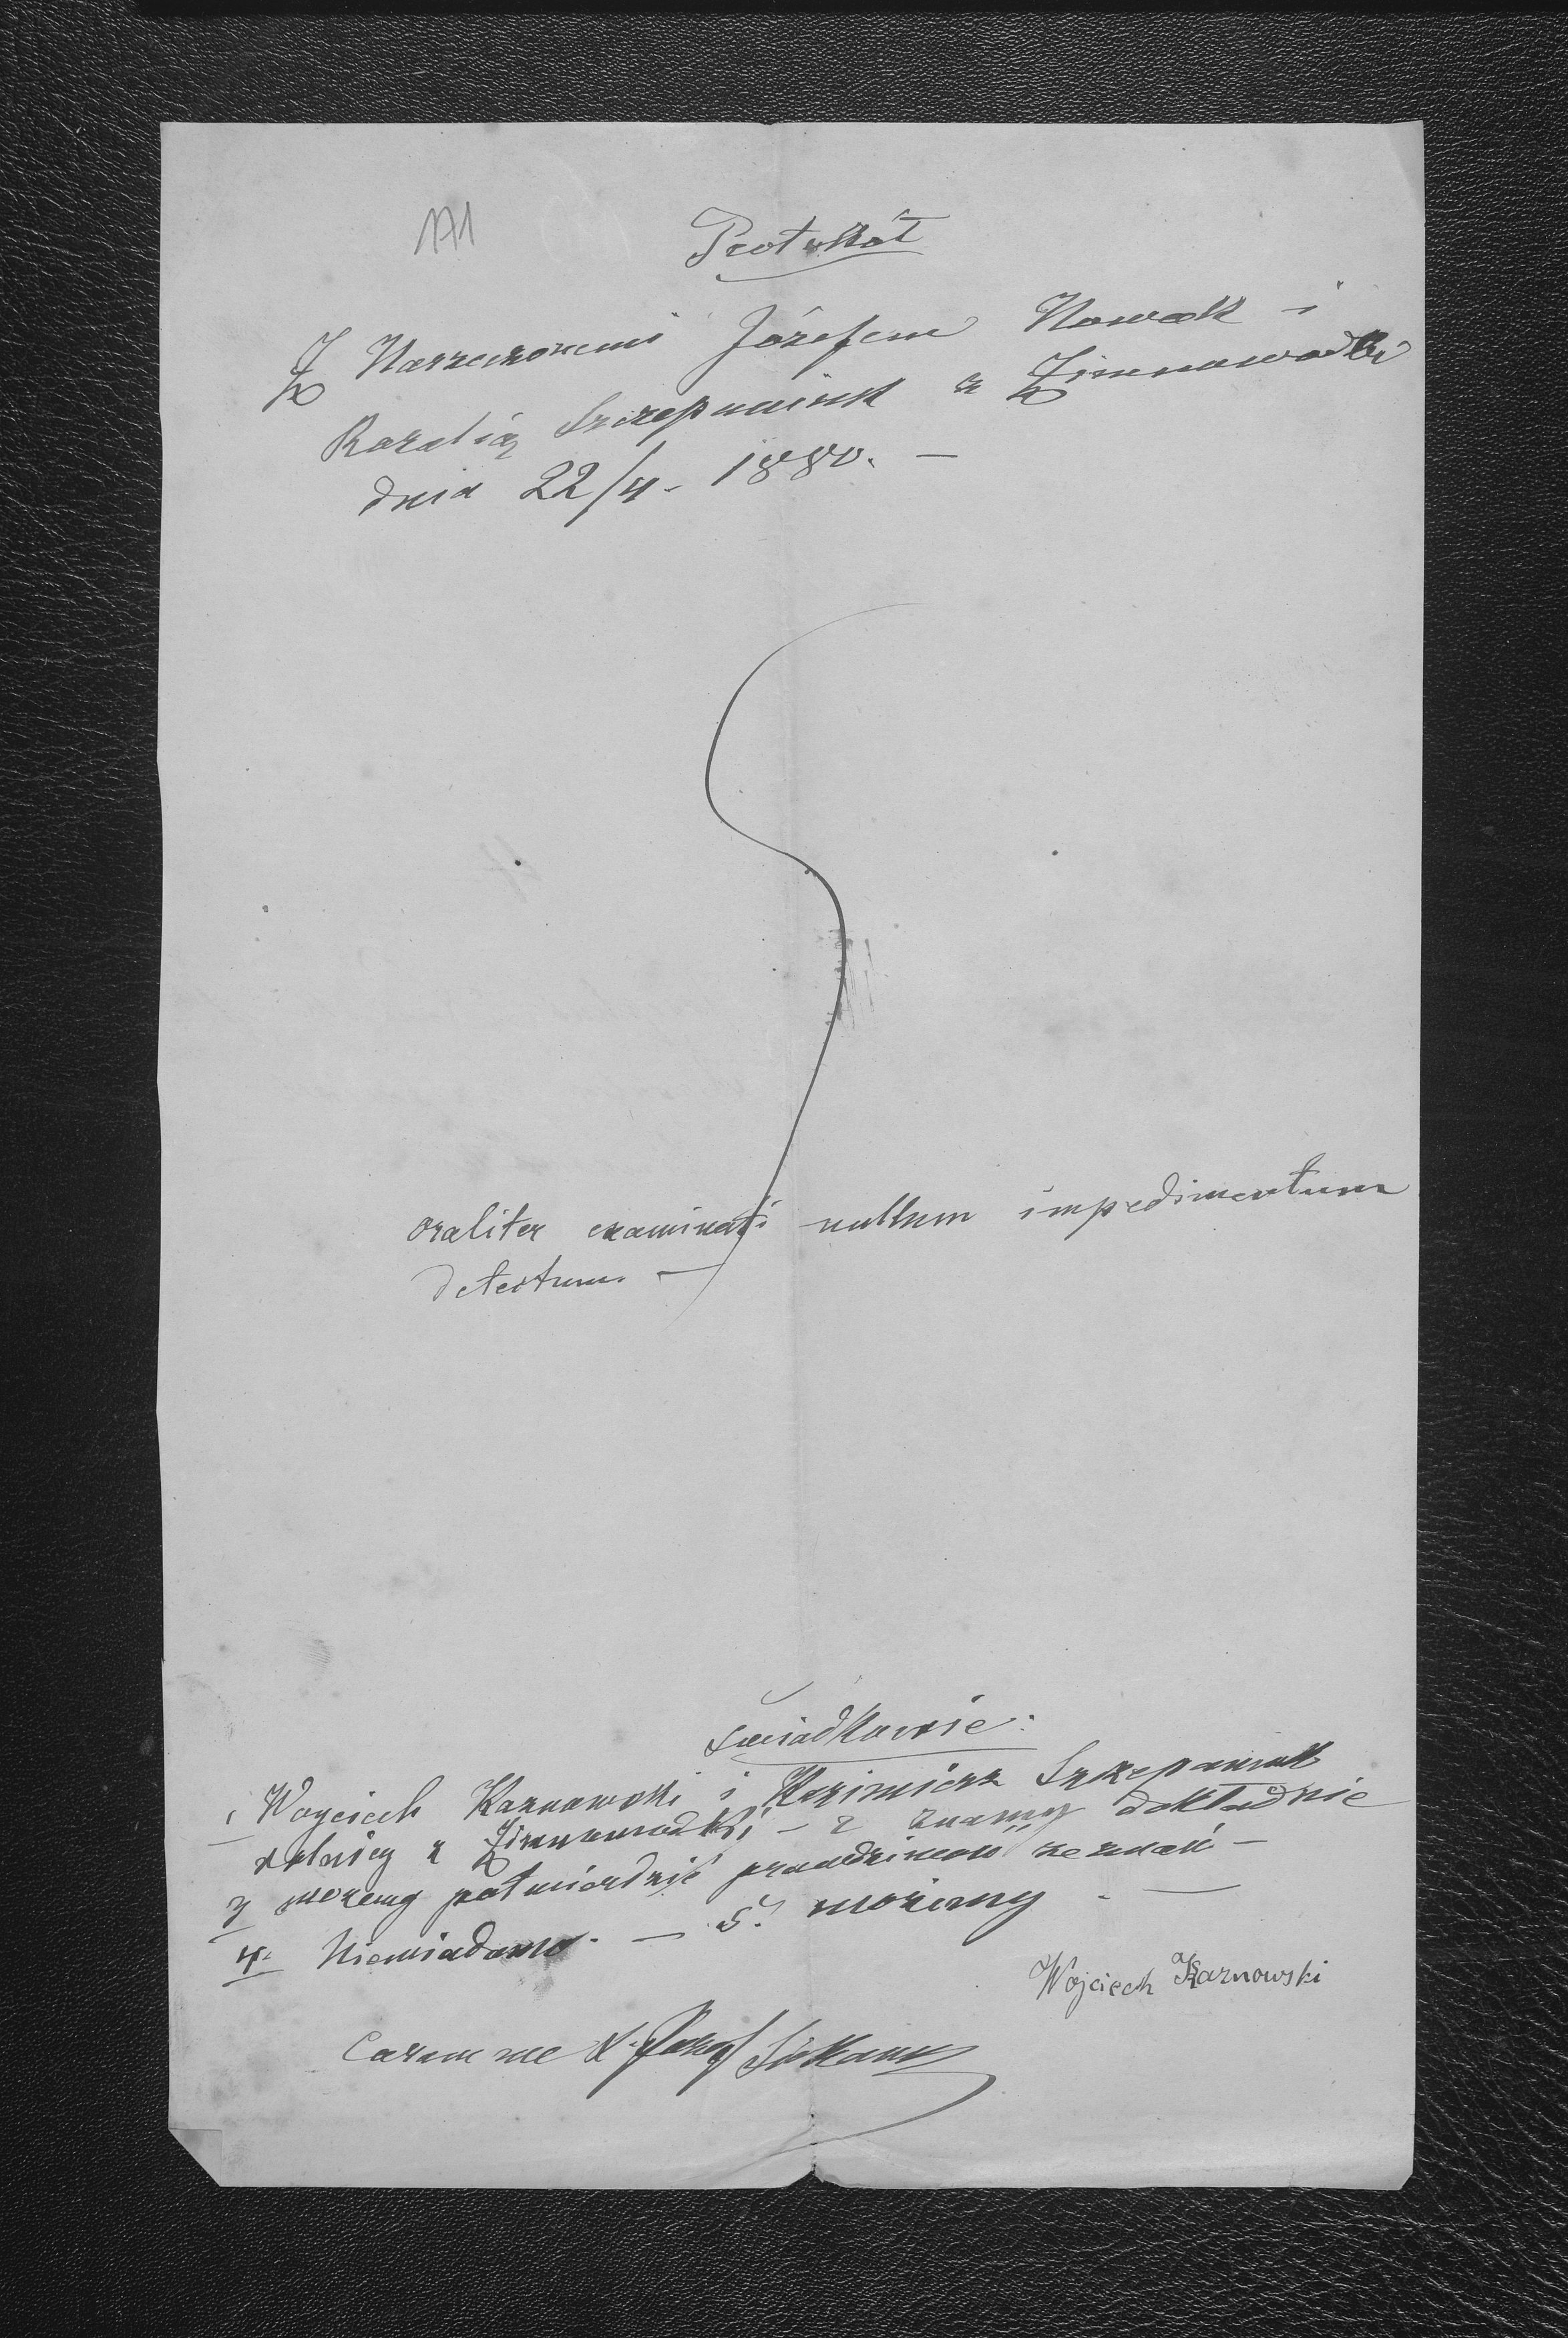 171
Protokół
Z Narzeczonemi Józefem Nowak i
Rozalią Szczepaniak z Zimnowodki
dnia 22/4. 1880. —
oraliter examinati nullum impedimentum
detectum. —
Swiadkowie:
1 Woyciech Karnowski i Kazimierz Szczepaniak
z Zimnowodki – 2 znamy dokładnie
3 możemy potwierdzić prawdziwość zeznań –
4. Niewiadomo. — 5. możemy. —
Wojciech Karnowski
Coram me X. Józef